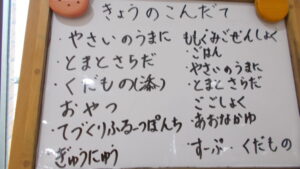 きょうのこんだて
・やさいのうまに
・とまとさらだ
・くだもの(添)
おやつ
・てづくりふるーつぽんち
・ぎゅうにゅう
もしくみごぜんしょく
・ごはん
・やさいのうまに
・とまとさらだ
ごごしょく
・あおなかゆ
・すーぷ・くだもの